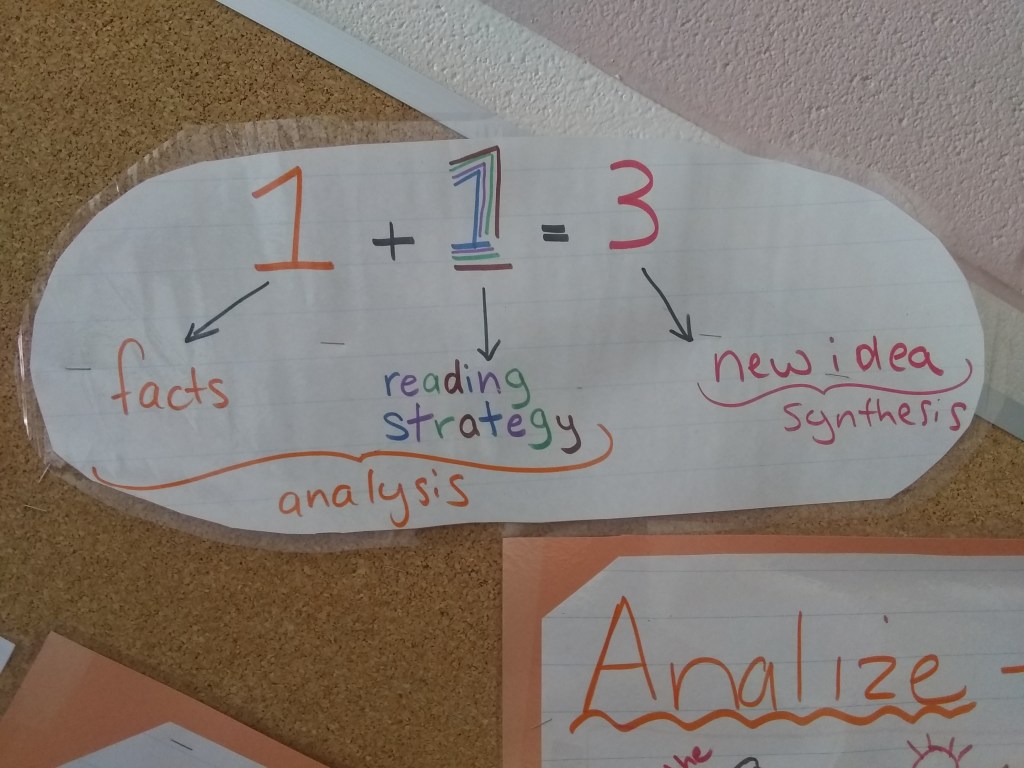 1 + 1 = 3
facts
reading
strategy
new idea
synthesis
analysis
Analize -
the